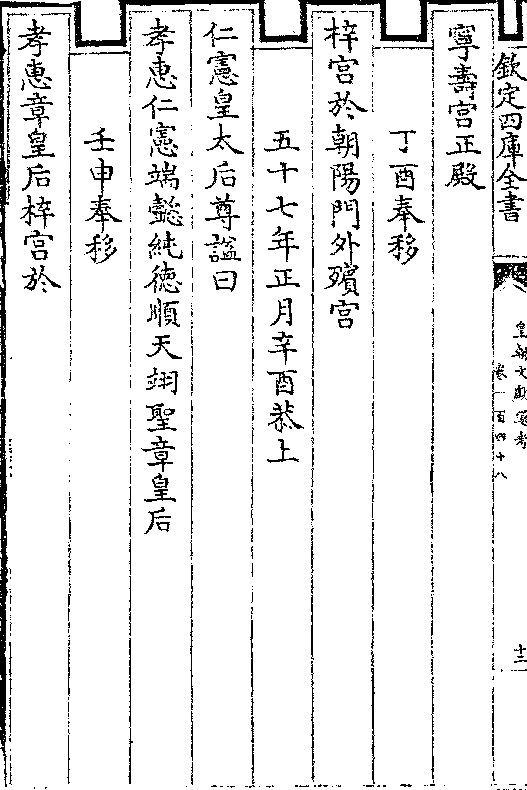 欽定四庫全書
皇朝文獻通考
卷一百四十八
十三
寧壽宮正殿
丁酉奉移
梓宮於朝陽門外殯宮
五十七年正月辛酉恭上
仁憲皇太后尊諡曰
孝惠仁憲端懿純德順天翊聖章皇后
壬申奉移
孝惠章皇后梓宮於